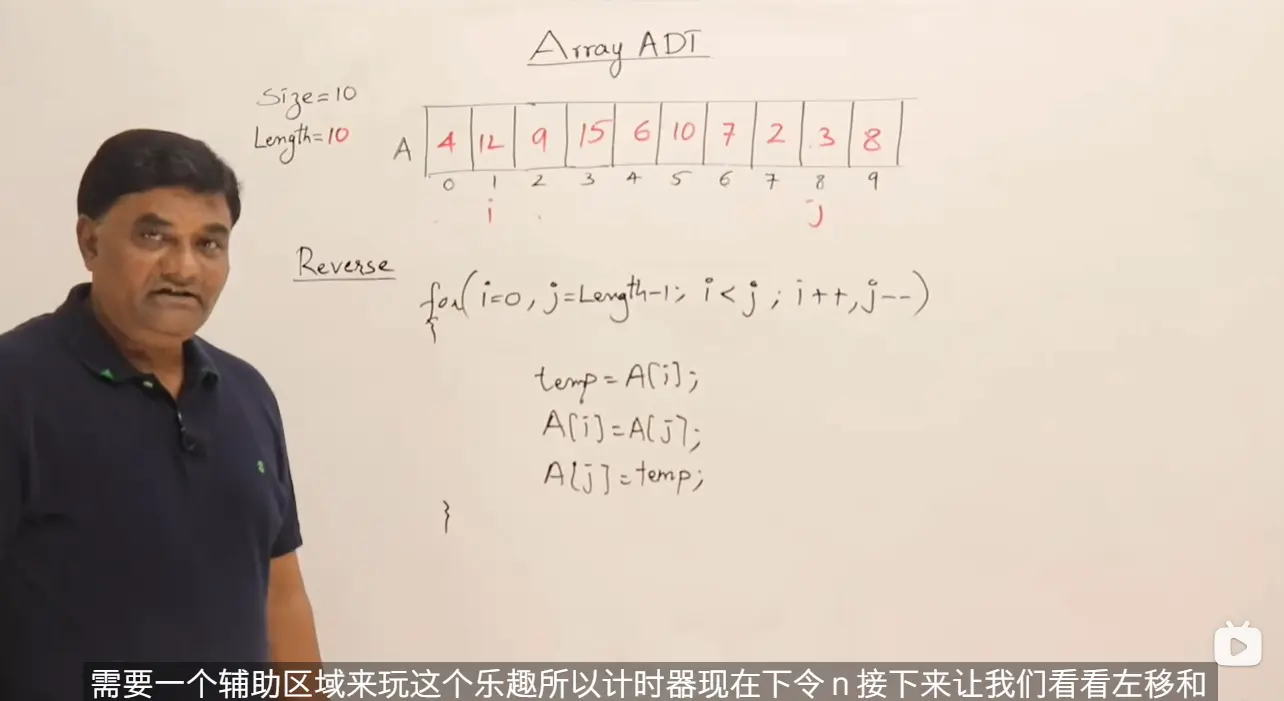 Array ADT
Size=10
Length=10
A 4 12 9 15 6 10 7 2 3 8
0 1 2 3 4 5 6 7 8 9
i j
Reverse
for(i=0, j=Length-1; i<j; i++, j--)
{
temp=A[i];
A[i]=A[j];
A[j]=temp;
}
需要一个辅助区域来玩这个乐趣所以计时器现在下令 n 接下来让我们看看左移和